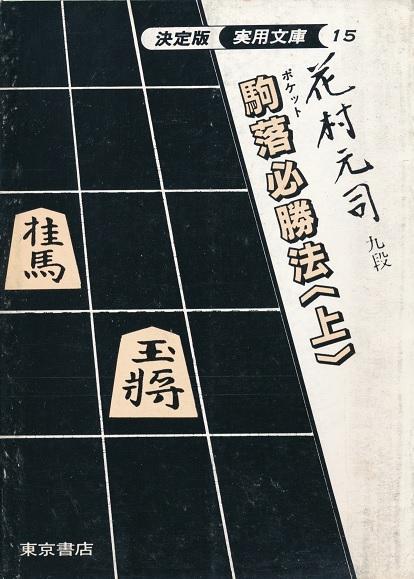 決定版 実用文庫 15
花村元司 九段
ポケット
駒落必勝法〈上〉
桂馬
玉将
東京書店